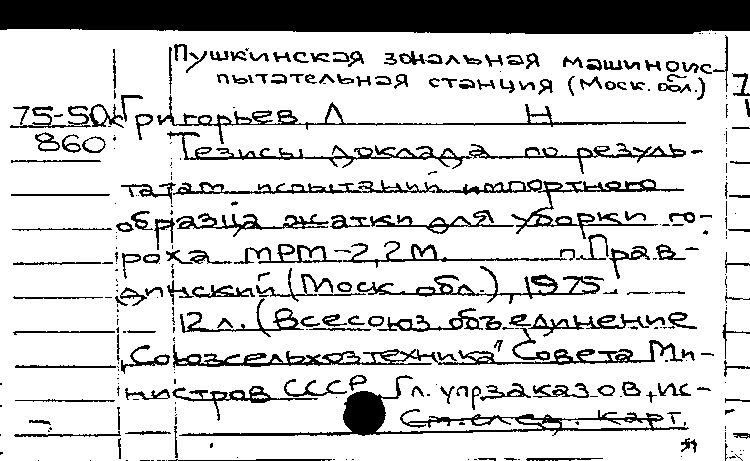 Пушкинская зональная машиноис-
пытательная станция (Моск. обл.)
75-50к Григорьев, Л Н
860 Тезисы доклада по резуль-
татам испытаний импортного
образца жатки для уборки го-
роха МРМ-2,2М. п. Прав-
динский (Моск. обл.), 1975.
12 л. (Всесоюз. объединение
„Союзсельхозтехника" Совета Ми-
нистров СССР Гл. упр. заказов, ис-
См. след. карт.